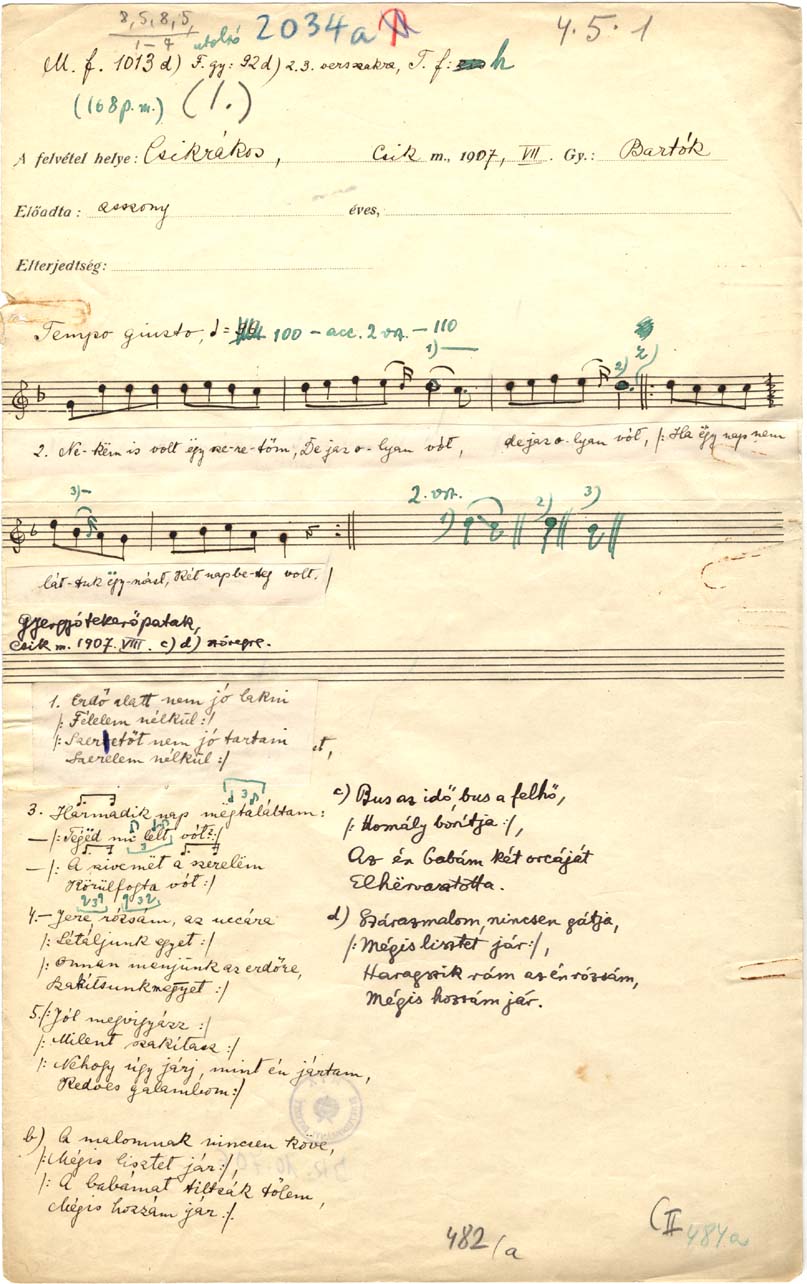 8, 5, 8, 5, 2034a 4. 5. 1
1-4 utolsó
M. f. 1013 d) F. gy: 92d) 2. 3. versszakra, T. f: h
(168 p. m.) (1.)
A felvétel helye: Csikrákos, Csik m., 1907, VII. Gy.: Bartók
Előadta: asszony éves,
Elterjedtség:
Tempo giusto, 100 – acc. 2 vsz. – 110
1) 2) 2)
2. Ne-këm is volt ëgy sze-re-tőm, De jaz o-lyan vót, de jaz o-lyan vót, /: Ha ëgy nap nem
3) 2. vsz. 1) 2) 3)
lát-tuk ëgy-mást, Két nap be-teg volt. /
Gyergyótekerőpatak,
Csik m. 1907. VIII. c) d) szövegre.
1. Erdő alatt nem jó lakni
/: Félelem nélkül :/
/: Szeretőt nem jó tartani
Szerelem nélkül :/
3. Harmadik nap mëgtaláltam:
– /: Tëgëd mi lelt vót? :/
– /: A szivemët a szerelëm
Körülfogta vót :/
4. – Jere, rózsám, az uccára
/: Sétáljunk egyet :/
/: Onnan menjünk az erdőre,
Szakitsunk megyet :/
5. /: Jól megvigyázz :/
/: Milent szakitasz :/
/: Nehogy úgy járj, mint én jártam,
Kedves galambom :/
b) A malomnak nincsen köve,
/: Mégis lisztet jár :/,
/: A babámat tiltsák tőlem,
Mégis hozzám jár :/.
c) Bus az idő, bus a felhő,
/: Homály boritja :/,
Az én babám két orcáját
Elhërvasztotta.
d) Szárazmalom, nincsen gátja,
/: Mégis lisztet jár :/,
Haragszik rám az én rózsám,
Mégis hozzám jár.
482/a
(II 484a